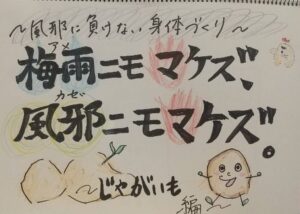 ～風邪に負けない身体づくり～
アメ
梅雨ニモマケズ、
カゼ
風邪ニモマケズ。
～じゃがいも編～